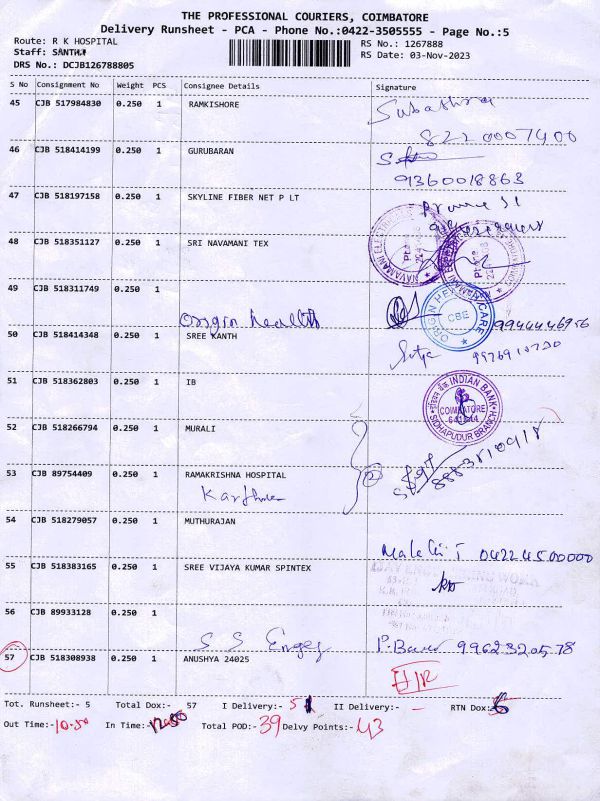 THE PROFESSIONAL COURIERS, COIMBATORE
Delivery Runsheet - PCA - Phone No.:0422-3505555 - Page No.:5
Route: R K HOSPITAL
RS No.: 1267888
Staff: SANTH
RS Date: 03-Nov-2023
DRS No.: DCJB126788805
S No Consignment No Weight PCS Consignee Details Signature
45 CJB 517984830 0.250 1 RAMKISHORE
822 0007400
46 CJB 518414199 0.250 1 GURUBARAN
9360018863
47 CJB 518197158 0.250 1 SKYLINE FIBER NET P LT
48 CJB 518351127 0.250 1 SRI NAVAMANI TEX
49 CJB 518311749 0.250 1
Origin health
ORIGIN HEALTH CARE CBE
9944446956
50 CJB 518414348 0.250 1 SREE KANTH
51 CJB 518362803 0.250 1 IB
INDIAN BANK COIMBATORE SIDHAPUDUR BRANCH
52 CJB 518266794 0.250 1 MURALI
53 CJB 89754409 0.250 1 RAMAKRISHNA HOSPITAL
2
54 CJB 518279057 0.250 1 MUTHURAJAN
0422 4500000
55 CJB 518383165 0.250 1 SREE VIJAYA KUMAR SPINTEX
56 CJB 89933128 0.250 1
S S Engg
9962320578
57 CJB 518308938 0.250 1 ANUSHYA 24025
Tot. Runsheet:- 5 Total Dox:- 57 I Delivery:- II Delivery:- - RTN Dox:
Out Time:-10.50 In Time: Total POD:- 39 Delvy Points:- 43